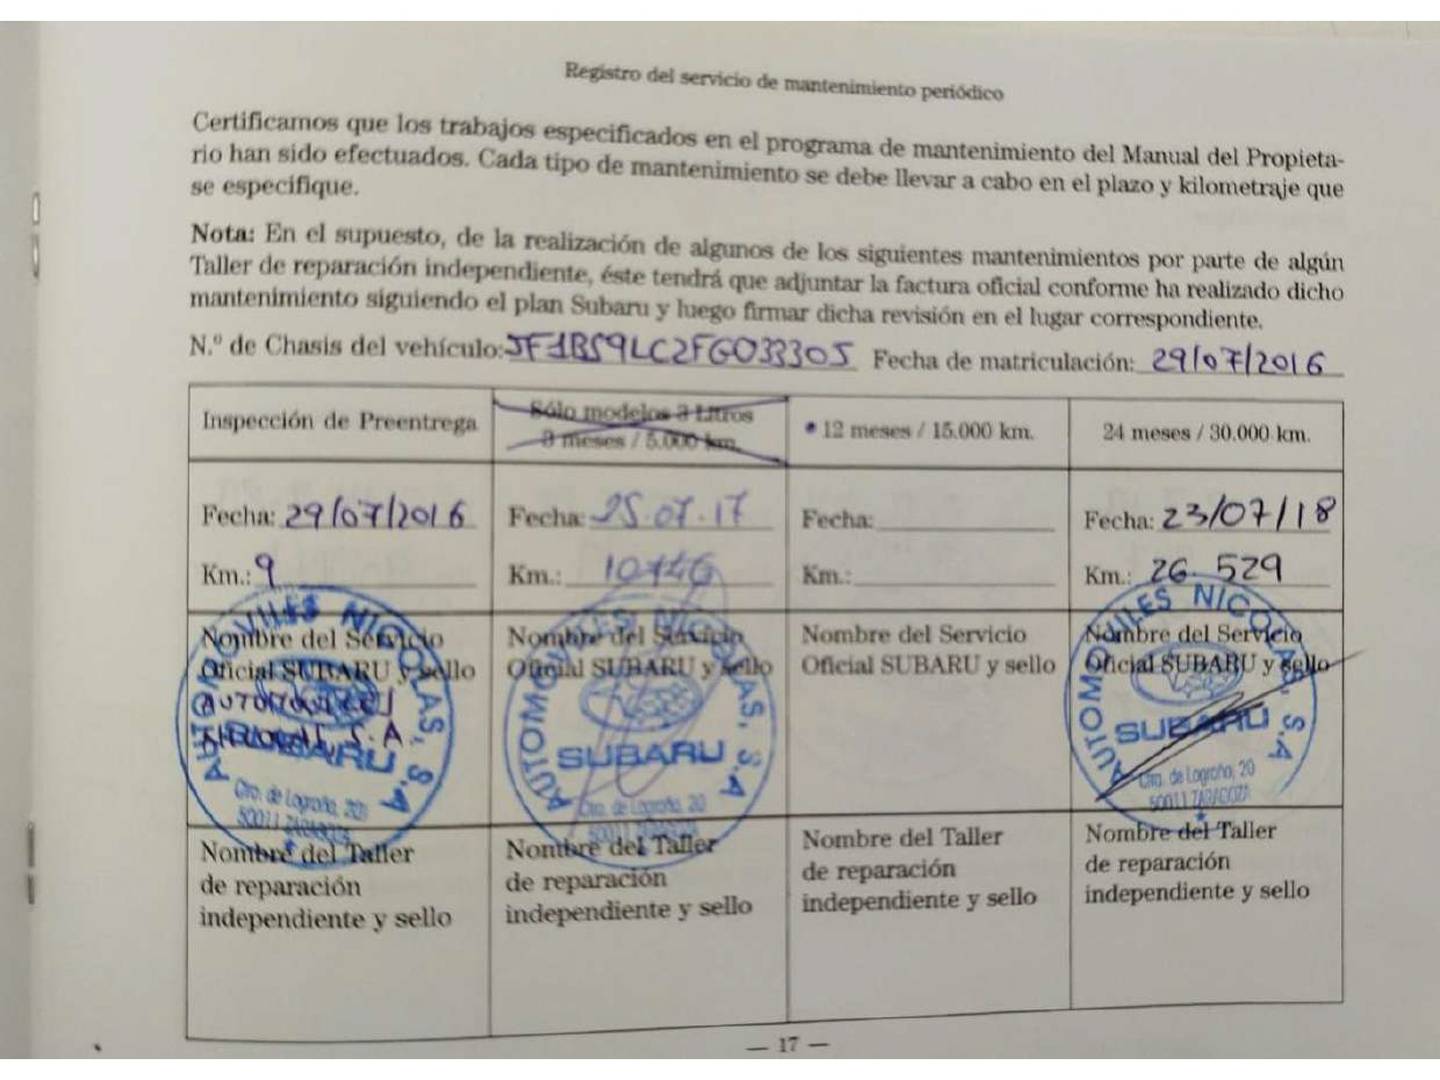 Registro del servicio de mantenimiento periódico
Certificamos que los trabajos especificados en el programa de mantenimiento del Manual del Propieta-
rio han sido efectuados. Cada tipo de mantenimiento se debe llevar a cabo en el plazo y kilometraje que
se especifique.
Nota: En el supuesto, de la realización de algunos de los siguientes mantenimientos por parte de algún
Taller de reparación independiente, éste tendrá que adjuntar la factura oficial conforme ha realizado dicho
mantenimiento siguiendo el plan Subaru y luego firmar dicha revisión en el lugar correspondiente.
N.º de Chasis del vehículo: JF1BS9LC2FG033305 Fecha de matriculación: 29/07/2016
Inspección de Preentrega
Sólo modelos 3 Litros
3 meses / 5.000 km.
12 meses / 15.000 km.
24 meses / 30.000 km.
Fecha: 29/07/2016
Fecha: 25.07.17
Fecha:
Fecha: 23/07/18
Km.: 9
Km.: 10746
Km.:
Km.: 26.529
Nombre del Servicio
Oficial SUBARU y sello
AUTOMOVILES
NICOLAS, S.A.
Nombre del Servicio
Oficial SUBARU y sello
Nombre del Servicio
Oficial SUBARU y sello
Nombre del Servicio
Oficial SUBARU y sello
AUTOMOVILES NICOLAS, S.A
SUBARU
Ctra. de Logroño, 20
50011 ZARAGOZA
AUTOMOVILES NICOLAS, S.A
SUBARU
Ctra. de Logroño, 20
50011 ZARAGOZA
AUTOMOVILES NICOLAS, S.A
SUBARU
Ctra. de Logroño, 20
50011 ZARAGOZA
Nombre del Taller
de reparación
independiente y sello
Nombre del Taller
de reparación
independiente y sello
Nombre del Taller
de reparación
independiente y sello
Nombre del Taller
de reparación
independiente y sello
— 17 —